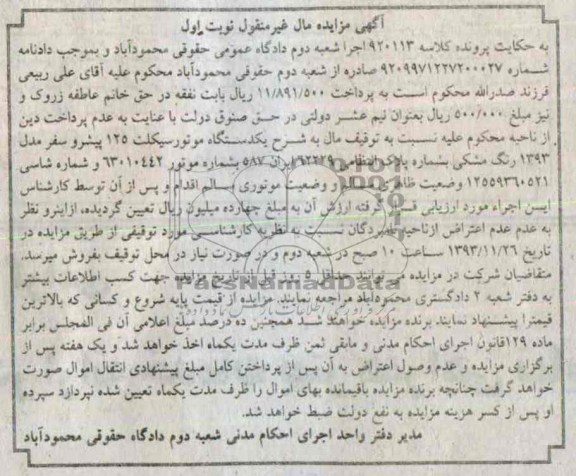 آگهی مزایده مال غیرمنقول نوبت اول
به حکایت پرونده کلاسه ۹۲۰۱۱۳ اجرا شعبه دوم دادگاه عمومی حقوقی محمودآباد و بموجب دادنامه
شماره ۹۲۰۹۹۷۱۲۲۷۲۰۰۰۲۷ صادره از شعبه دوم حقوقی محمودآباد محکوم علیه آقای علی ربیعی
فرزند صدرالله محکوم است به پرداخت ۱۱/۸۹۱/۵۰۰ ریال بابت نفقه در حق خانم عاطفه زروک و
نیز مبلغ ۵۰۰/۰۰۰ ریال بعنوان نیم عشر دولتی در حق صنوق دولت با عنایت به عدم پرداخت دین
از ناحیه محکوم علیه نسبت به توقیف مال به شرح یکدستگاه موتورسیکلت ۱۲۵ پیشرو سفر مدل
۱۳۹۳ رنگ مشکی بشماره پلاک انتظامی ۶۲۲۲۹ ایران ۵۸۷ بشماره موتور ۶۳۰۱۰۴۴۲ و شماره شاسی
۱۲۵۵۹۳۶۰۵۲۱ وضعیت ظاهری و وضعیت موتوری سالم اقدام و پس از آن توسط کارشناس
ایسن اجراء مورد ارزیابی قرار گرفته ارزش آن به مبلغ چهارده میلیون ریال تعیین گردیده، ازاینرو نظر
به عدم عدم اعتراض ازناحیه نامبردگان نسبت به نظریه کارشناسی مورد توقیفی از طریق مزایده در
تاریخ ۱۳۹۳/۱۱/۲۶ ساعت ۱۰ صبح در شعبه دوم و در صورت نیاز در محل توقیف بفروش میرسد.
متقاضیان شرکت در مزایده می توانند حداقل ۵ روز قبل از تاریخ مزایده جهت کسب اطلاعات بیشتر
به دفتر شعبه ۲ دادگستری محمودآباد مراجعه نمایند. مزایده از قیمت پایه شروع و کسانی که بالاترین
قیمترا پیشنهاد نمایند برنده مزایده خواهند شد همچنین ده درصد مبلغ اعلامی آن فی المجلس برابر
ماده ۱۲۹قانون اجرای احکام مدنی و مابقی ثمن ظرف مدت یکماه اخذ خواهد شد و یک هفته پس از
برگزاری مزایده و عدم وصول اعتراض به آن پس از پرداختن کامل مبلغ پیشنهادی انتقال اموال صورت
خواهد گرفت چنانچه برنده مزایده باقیمانده بهای اموال را ظرف مدت یکماه تعیین شده نپردازد سپرده
او پس از کسر هزینه مزایده به نفع دولت ضبط خواهد شد.
مدیر دفتر واحد اجرای احکام مدنی شعبه دوم دادگاه حقوقی محمودآباد
ParsNamadData